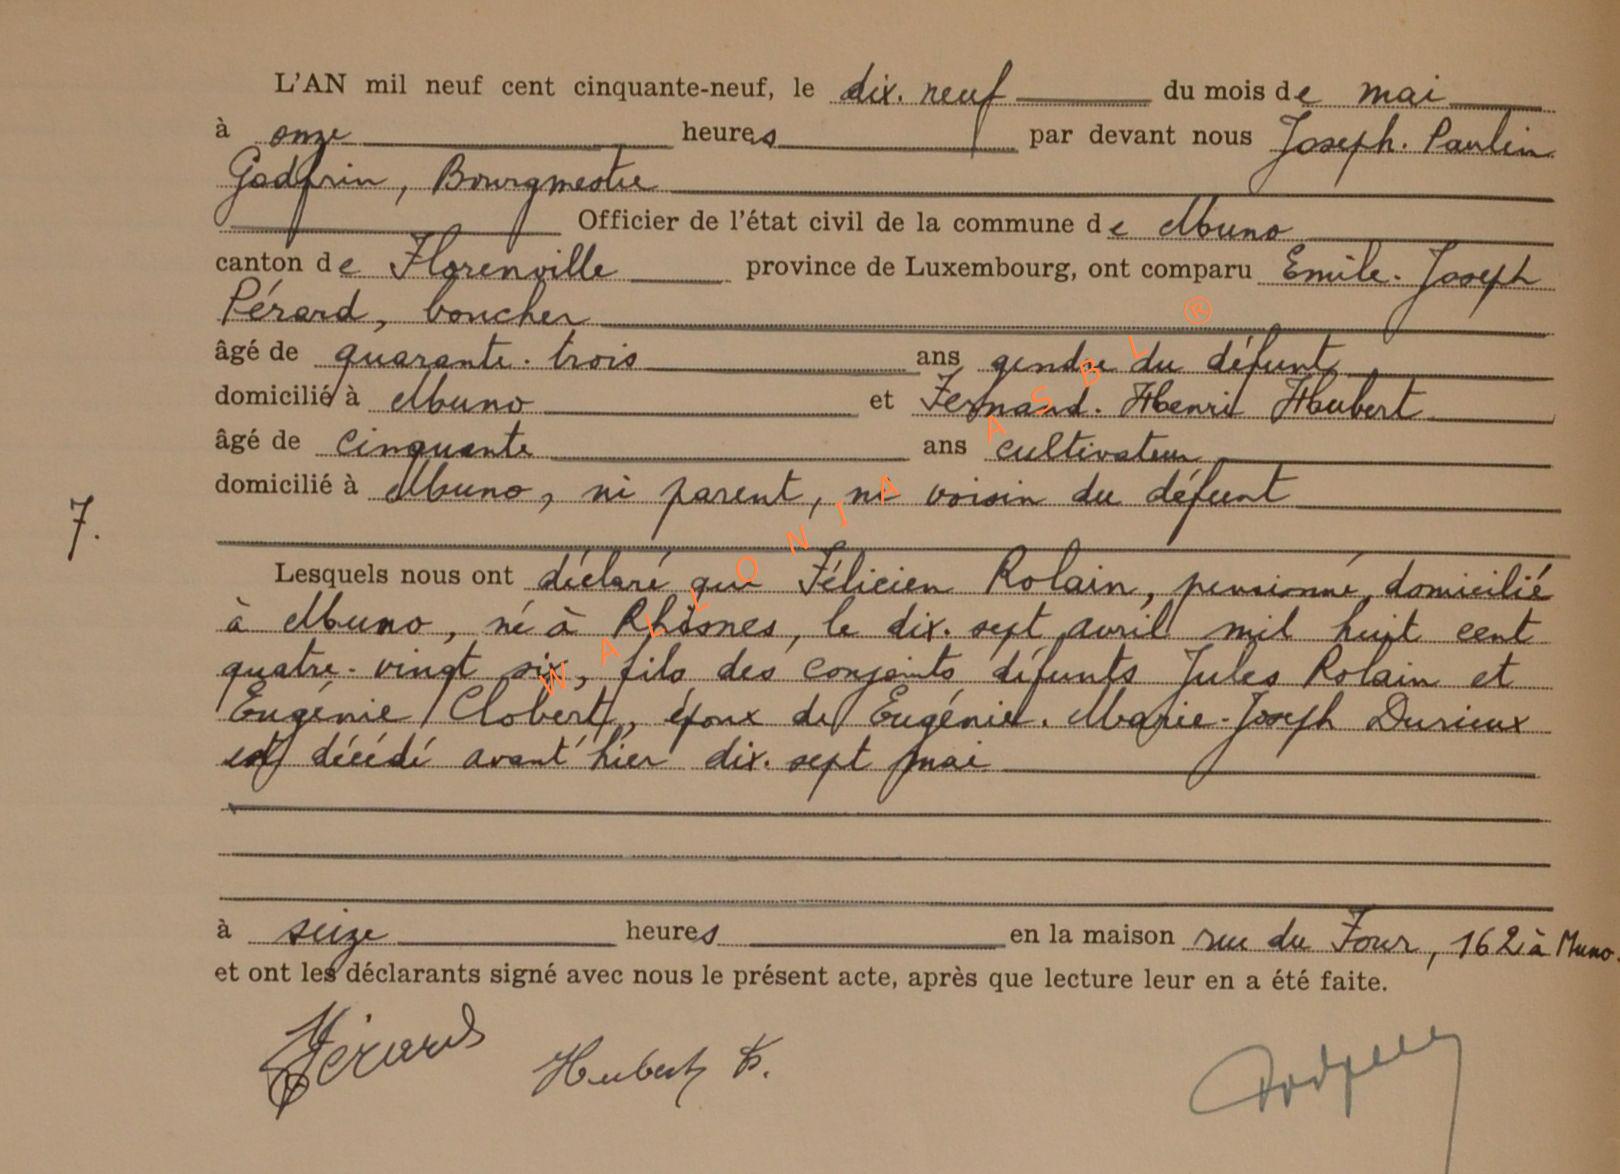 L'AN mil neuf cent cinquante-neuf, le dix. neuf du mois de mai
à onze heures par devant nous Joseph. Paulin
Godfrin, Bourgmestre
Officier de l'état civil de la commune de Muno
canton de Florenville province de Luxembourg, ont comparu Emile. Joseph
Pérard, boucher
âgé de quarante. trois ans gendre du défunt
domicilié à Muno et Fernand. Henri Hubert
âgé de cinquante ans cultivateur
domicilié à Muno, ni parent, ni voisin du défunt
7.
Lesquels nous ont déclaré que Félicien Rolain, pensionné, domicilié
à Muno, né à Rhisnes, le dix. sept avril mil huit cent
quatre-vingt six, fils des conjoints défunts Jules Rolain et
Eugénie Clobert, époux de Eugénie. Marie-Joseph Durieux
est décédé avant hier dix. sept mai
à seize heures en la maison rue du Four, 162 à Muno.
et ont les déclarants signé avec nous le présent acte, après que lecture leur en a été faite.
Pérard Hubert F. Godfrin
WALLONIA ASBL ®